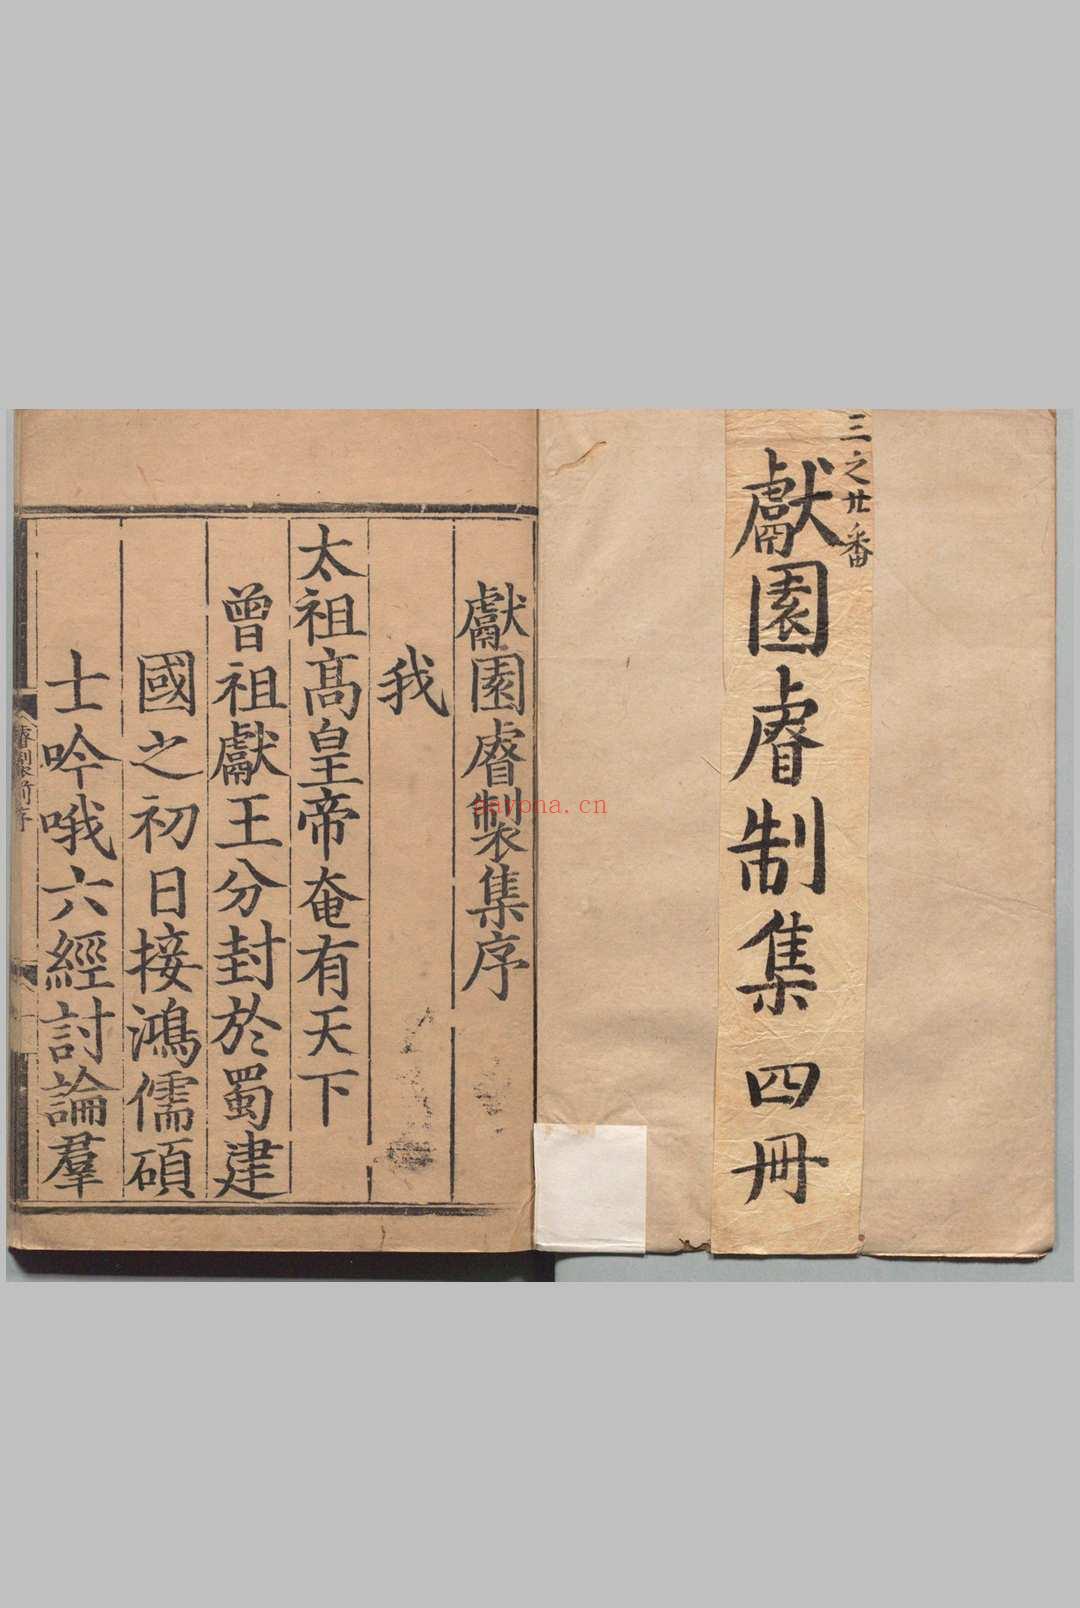 三之廿番
獻園睿制集 四冊
獻園睿製集序
我
太祖髙皇帝奄有天下
曾祖獻王分封於蜀建
國之初日接鴻儒碩
士吟哦六經討論羣
睿製集前序
yayona.cn